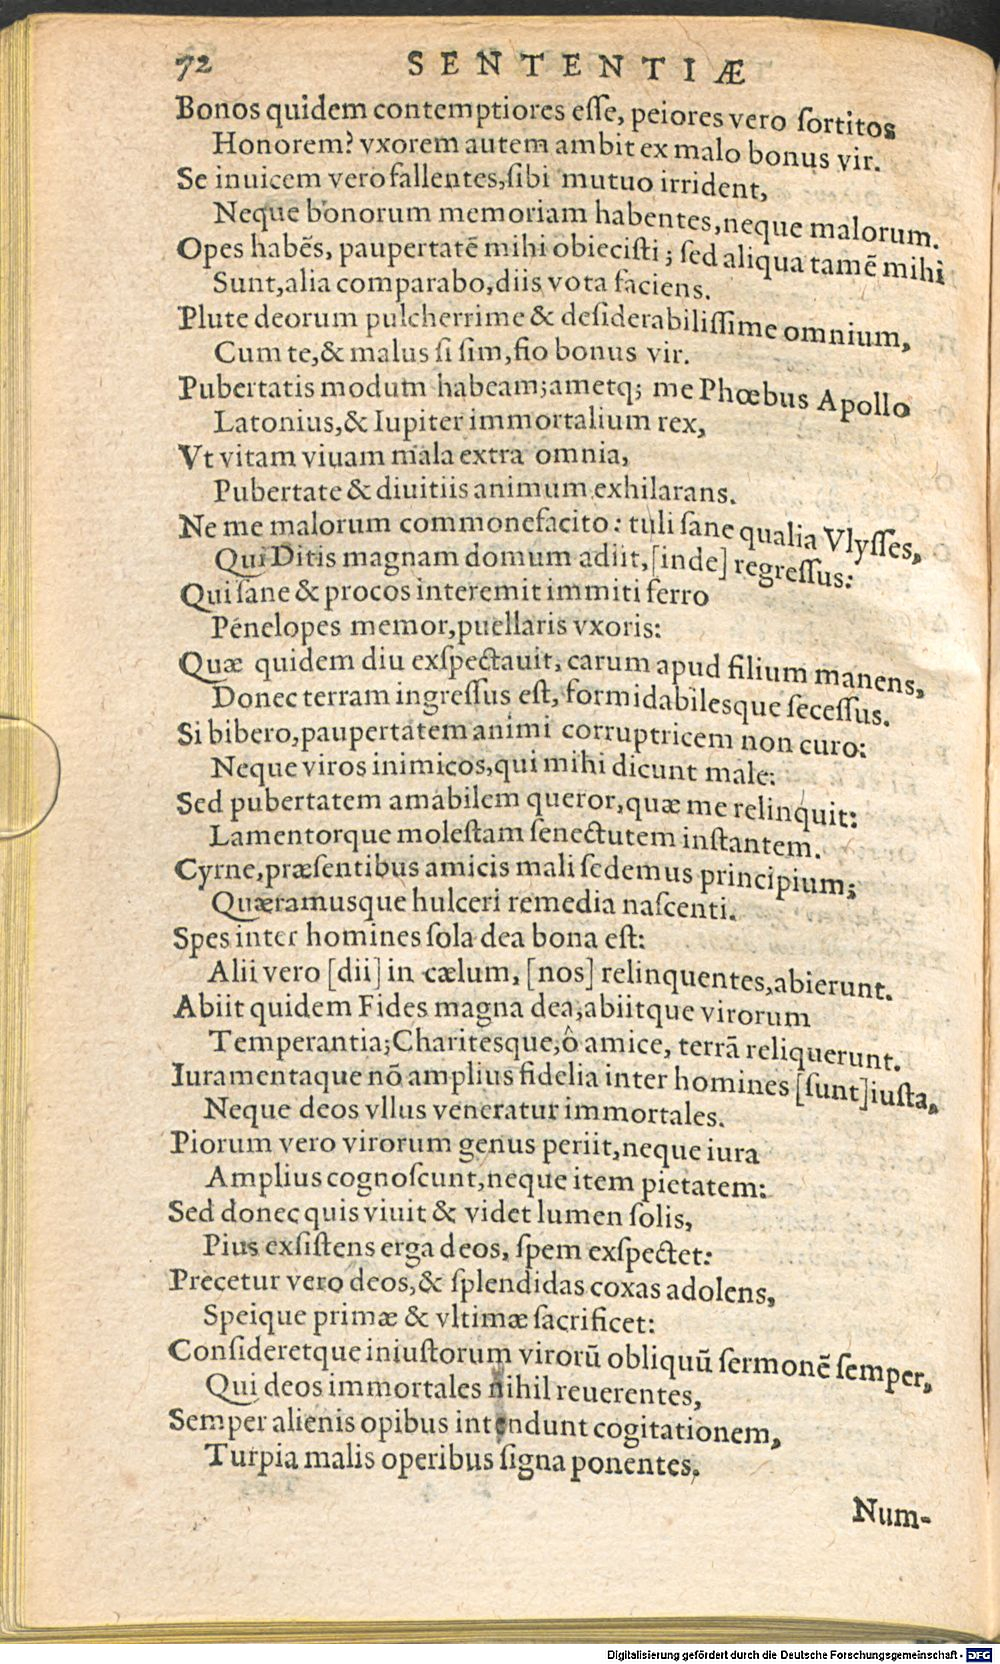 72 SENTENTIÆ
Bonos quidem contemptiores eſſe, peiores vero ſortitos
Honorem? vxorem autem ambit ex malo bonus vir.
Se inuicem vero fallentes,ſibi mutuo irrident,
Neque bonorum memoriam habentes,neque malorum.
Opes habẽs, paupertatẽ mihi obieciſti; ſed aliqua tamẽ mihi
Sunt,alia comparabo,diis vota faciens.
Plute deorum pulcherrime & deſiderabiliſſime omnium,
Cum te,& malus ſi ſim,fio bonus vir.
Pubertatis modum habeam;ametq; me Phœbus Apollo
Latonius,& Iupiter immortalium rex,
Vt vitam viuam mala extra omnia,
Pubertate & diuitiis animum exhilarans.
Ne me malorum commonefacito: tuli ſane qualia Vlyſſes,
Qui Ditis magnam domum adiit,[inde] regreſſus:
Qui ſane & procos interemit immiti ferro
Penelopes memor,puellaris vxoris:
Quæ quidem diu exſpectauit, carum apud filium manens,
Donec terram ingreſſus eſt, formidabilesque ſeceſſus.
Si bibero,paupertatem animi corruptricem non curo:
Neque viros inimicos,qui mihi dicunt male:
Sed pubertatem amabilem queror,quæ me relinquit:
Lamentorque moleſtam ſenectutem inſtantem.
Cyrne,præſentibus amicis mali ſedemus principium;
Quæramusque hulceri remedia naſcenti.
Spes inter homines ſola dea bona eſt:
Alii vero [dii] in cælum, [nos] relinquentes,abierunt.
Abiit quidem Fides magna dea;abiitque virorum
Temperantia;Charitesque,ô amice, terrã reliquerunt.
Iuramentaque nõ amplius fidelia inter homines [ſunt]iuſta,
Neque deos vllus veneratur immortales.
Piorum vero virorum genus periit,neque iura
Amplius cognoſcunt,neque item pietatem:
Sed donec quis viuit & videt lumen ſolis,
Pius exſiſtens erga deos, ſpem exſpectet:
Precetur vero deos,& ſplendidas coxas adolens,
Speique primæ & vltimæ ſacrificet:
Conſideretque iniuſtorum virorũ obliquũ ſermonẽ ſemper,
Qui deos immortales nihil reuerentes,
Semper alienis opibus intendunt cogitationem,
Turpia malis operibus ſigna ponentes.
Num-
Digitalisierung gefördert durch die Deutsche Forschungsgemeinschaft - DFG